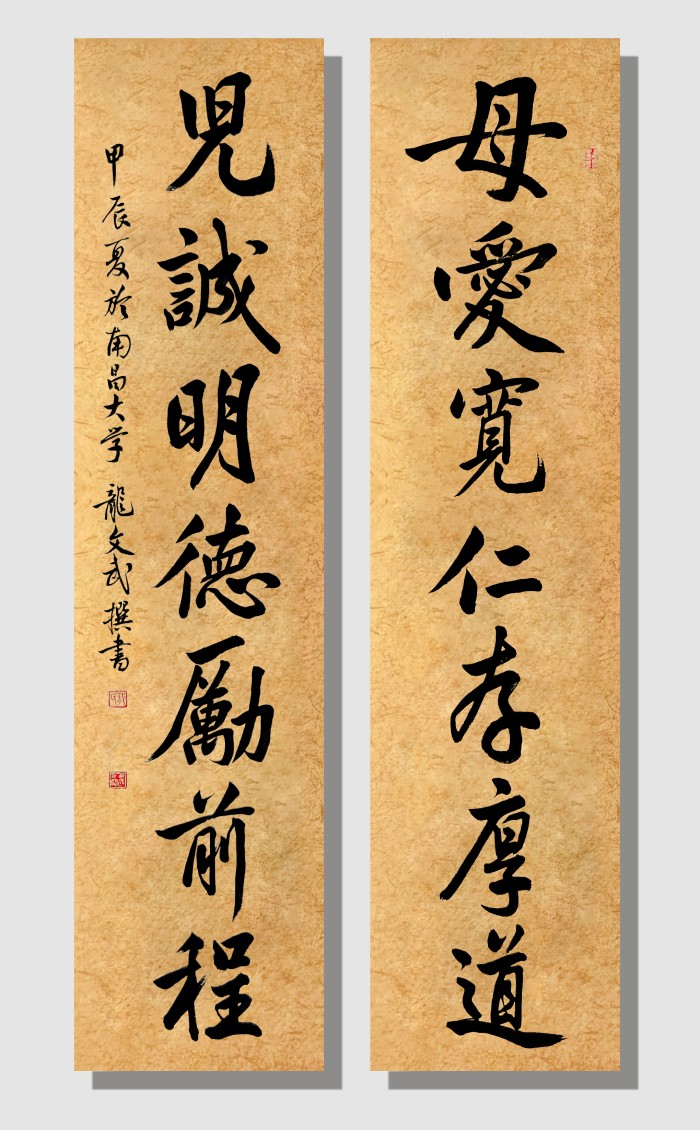 母愛寬仁存厚道
兒誠明德勵前程
甲辰夏於南昌大学 龍文武撰書